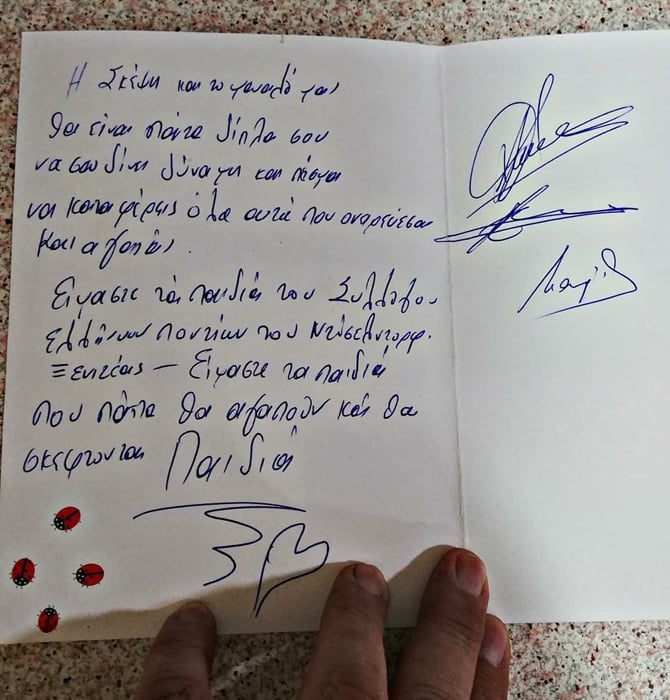 Η Σκέψη και το μυαλό μας
θα είναι πάντα δίπλα σου
να σου δίνει δύναμη και πείσμα
να καταφέρεις όλα αυτά που ονειρεύεσαι
και αγαπάς.
Είμαστε τα παιδιά του Συλλόγου
Ελλήνων Ποντίων του Ντύσελντορφ.
Ξενιτέας — Είμαστε τα παιδιά
που πάντα θα αγαπούν και θα
σκέφτονται Παιδιά